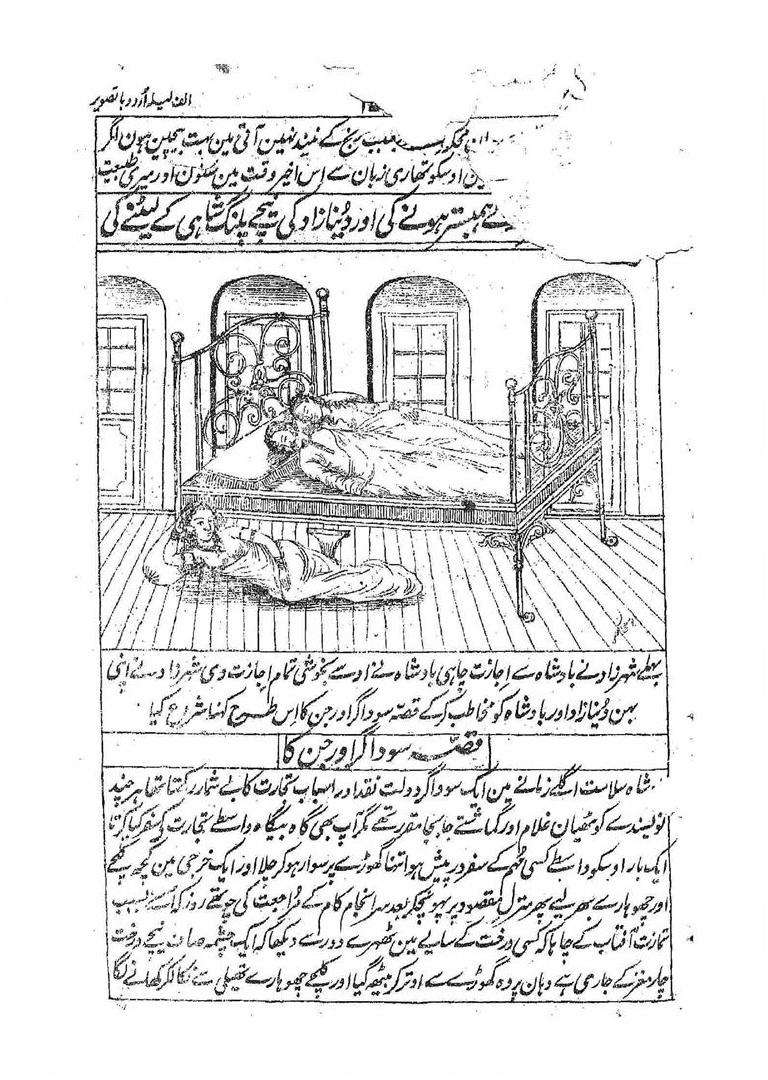 الف لیلہ اردو با تصویر
سبب رنج کے نیند نہین آتی مین بہت بیچین ہون اگر
اوسکو تمھاری زبان سے اس اخیر وقت مین سنون اور میری طبیعت
ہمبستر ہونے کی اور دنیازاد کی نیچے پلنگ شاہی کے لیٹنے کی
پہلے شہرزاد نے بادشاہ سے اجازت چاہی بادشاہ نے اوسے بخوشی تمام اجازت دی شہرزاد نے اپنی
بہن دنیازاد اور بادشاہ کو مخاطب کرکے قصہ سوداگر اور جن کا اس طرح کہنا شروع کیا
قصہ سوداگر اور جن کا
شاہ سلامت اگلے زمانے مین ایک سوداگر دولت نقد اور اسباب تجارت کا بے شمار رکھتا تھا ہر چند
کوٹھیان غلام اور گماشتے جا بجا مقرر تھے مگر آپ بھی گاہ بیگاہ واسطے تجارت کے سفر کیا کرتا
ایک بار اوسکو واسطے کسی مہم کے سفر درپیش ہوا تنہا گھوڑے پر سوار ہو کر چلا اور ایک خرجی مین کچھ کلچے
اور چھوہارے بھر لیے پھر منزل مقصود پر پہونچکر بعد سر انجام کام کے مراجعت کی چوتھے روز کہ اسے بسبب
تمازت آفتاب کے چاہا کہ کسی درخت کے سایے مین ٹھہرے دور سے دیکھا کہ ایک چشمہ صاف نیچے درخت
چار مغز کے جاری ہے وہان پر وہ گھوڑے سے اوتر کر بیٹھ گیا اور کلچے چھوہارے تھیلی سے نکالکر کھانے لگا